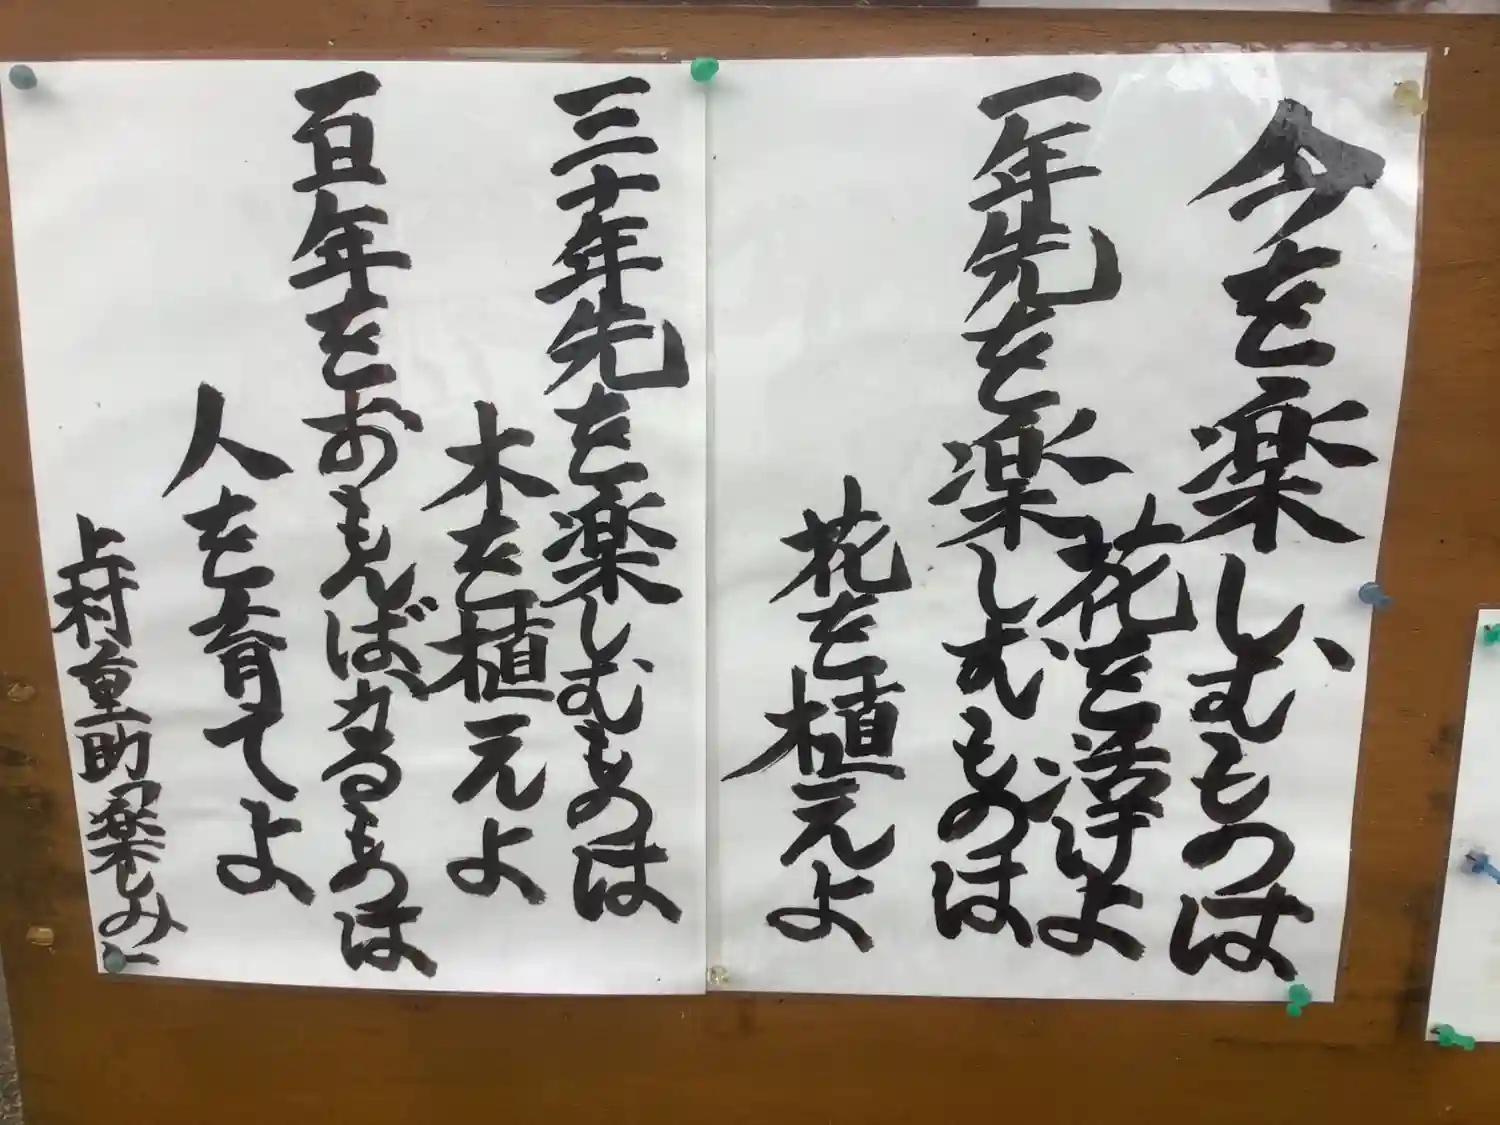 今を楽しむものは
花を活けよ
一年先を楽しむものは
花を植えよ
三十年先を楽しむものは
木を植えよ
百年をおもんばかるものは
人を育てよ
上村重助 楽しみ